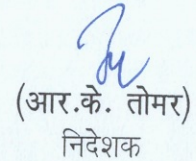 (आर.के. तोमर)
निदेशक